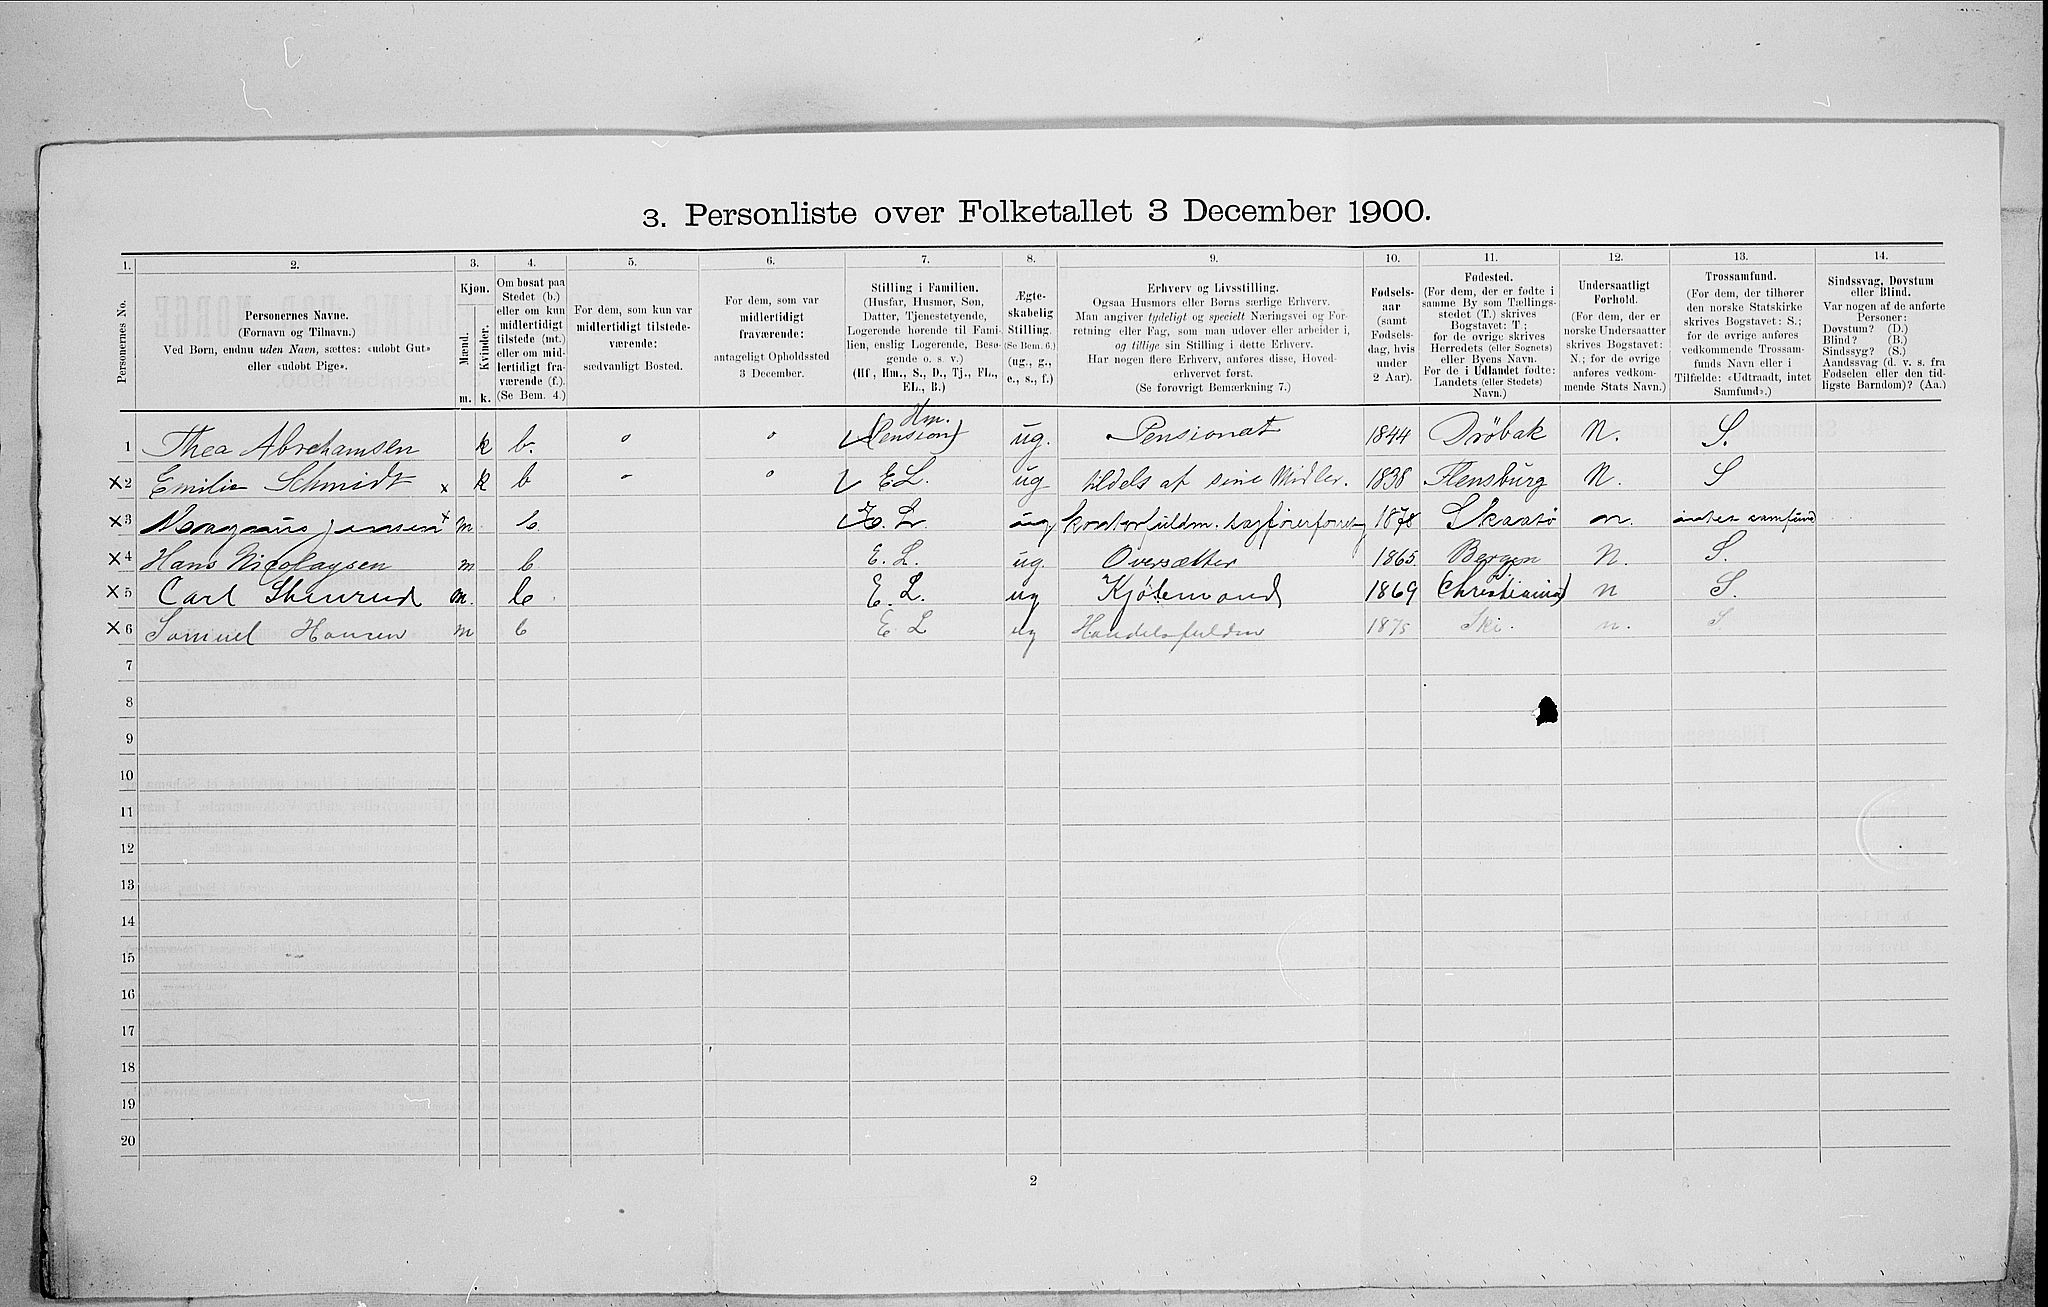 3. Personliste over Folketallet 3 December 1900.
1. 2. 3. 4. 5. 6. 7. 8. 9. 10. 11. 12. 13. 14.
Personernes No.
Personernes Navne.
(Fornavn og Tilnavn.)
Ved Børn, endnu uden Navn, sættes: «udøbt Gut»
eller «udøbt Pige».
Kjøn.
Mænd.
Kvinder.
m. k.
Om bosat paa
Stedet (b.)
eller om kun
midlertidigt
tilstede (mt.)
eller om mid-
lertidigt fra-
værende (f.).
(Se Bem. 4.)
For dem, som kun var
midlertidigt tilstede-
værende:
sædvanligt Bosted.
For dem, som var
midlertidigt
fraværende:
antageligt Opholdssted
3 December.
Stilling i Familien.
(Husfar, Husmor, Søn,
Datter, Tjenestetyende,
Logerende hørende til Fami-
lien, enslig Logerende, Besø-
gende o. s. v.)
(Hf, Hm., S., D., Tj., FL.,
EL., B.)
Ægte-
skabelig
Stilling.
(Se Bem. 6.)
(ug., g.,
e., s., f.)
Erhverv og Livsstilling.
Ogsaa Husmors eller Børns særlige Erhverv.
Man angiver tydeligt og specielt Næringsvei og For-
retning eller Fag, som man udover eller arbeider i,
og tillige sin Stilling i dette Erhverv.
Har nogen flere Erhverv, anføres disse, Hoved-
erhvervet først.
(Se forøvrigt Bemærkning 7.)
Fødsels-
aar
(samt
Fødsels-
dag, hvis
under
2 Aar).
Fødested.
(For dem, der er fødte i
samme By som Tællings-
stedet (T.) skrives
Bogstavet: T;
for de øvrige skrives
Herredets (eller Sognets)
eller Byens Navn.
For de i Udlandet fødte:
Landets (eller Stedets)
Navn.)
Undersaatligt
Forhold.
(For dem, der er
norske Undersaatter
skrives Bogstavet:
N.; for de øvrige
anføres vedkom-
mende Stats Navn.)
Trossamfund.
(For dem, der tilhører
den norske Statskirke
skrives Bogstavet: S.;
for de øvrige anføres
vedkommende Trossam-
funds Navn eller i
Tilfælde: «Udtraadt, intet
Samfund».)
Sindssvag, Døvstum
eller Blind.
Var nogen af de anførte
Personer:
Døvstum? (D.)
Blind? (B.)
Sindssyg? (S.)
Aandssvag (d. v. s. fra
Fødselen eller den tid-
ligste Barndom)? (Aa.)
1 Thea Abrahamsen k b. Hm. (Pension) ug. Pensionat 1844 Drøbak N. S.
x2 Emilie Schmidt x k b E L. ug tildels af sine Midler. 1838 Flensburg N. S
x3 Magnus Jensen x m b. E. L. ug 1878 Skaatø n. intet samfund
x4 Hans Nicolaysen m b E. L. ug Oversætter 1865. Bergen N. S.
x5 Carl m. b. E. L. ug Kjøbmand 1869 Christiania n S.
x6 Samuel Hansen m b E L ug Handelsfuldm 1875 Ski. n. S
7
8
9
10
11
12
13
14
15
16
17
18
19
20
2